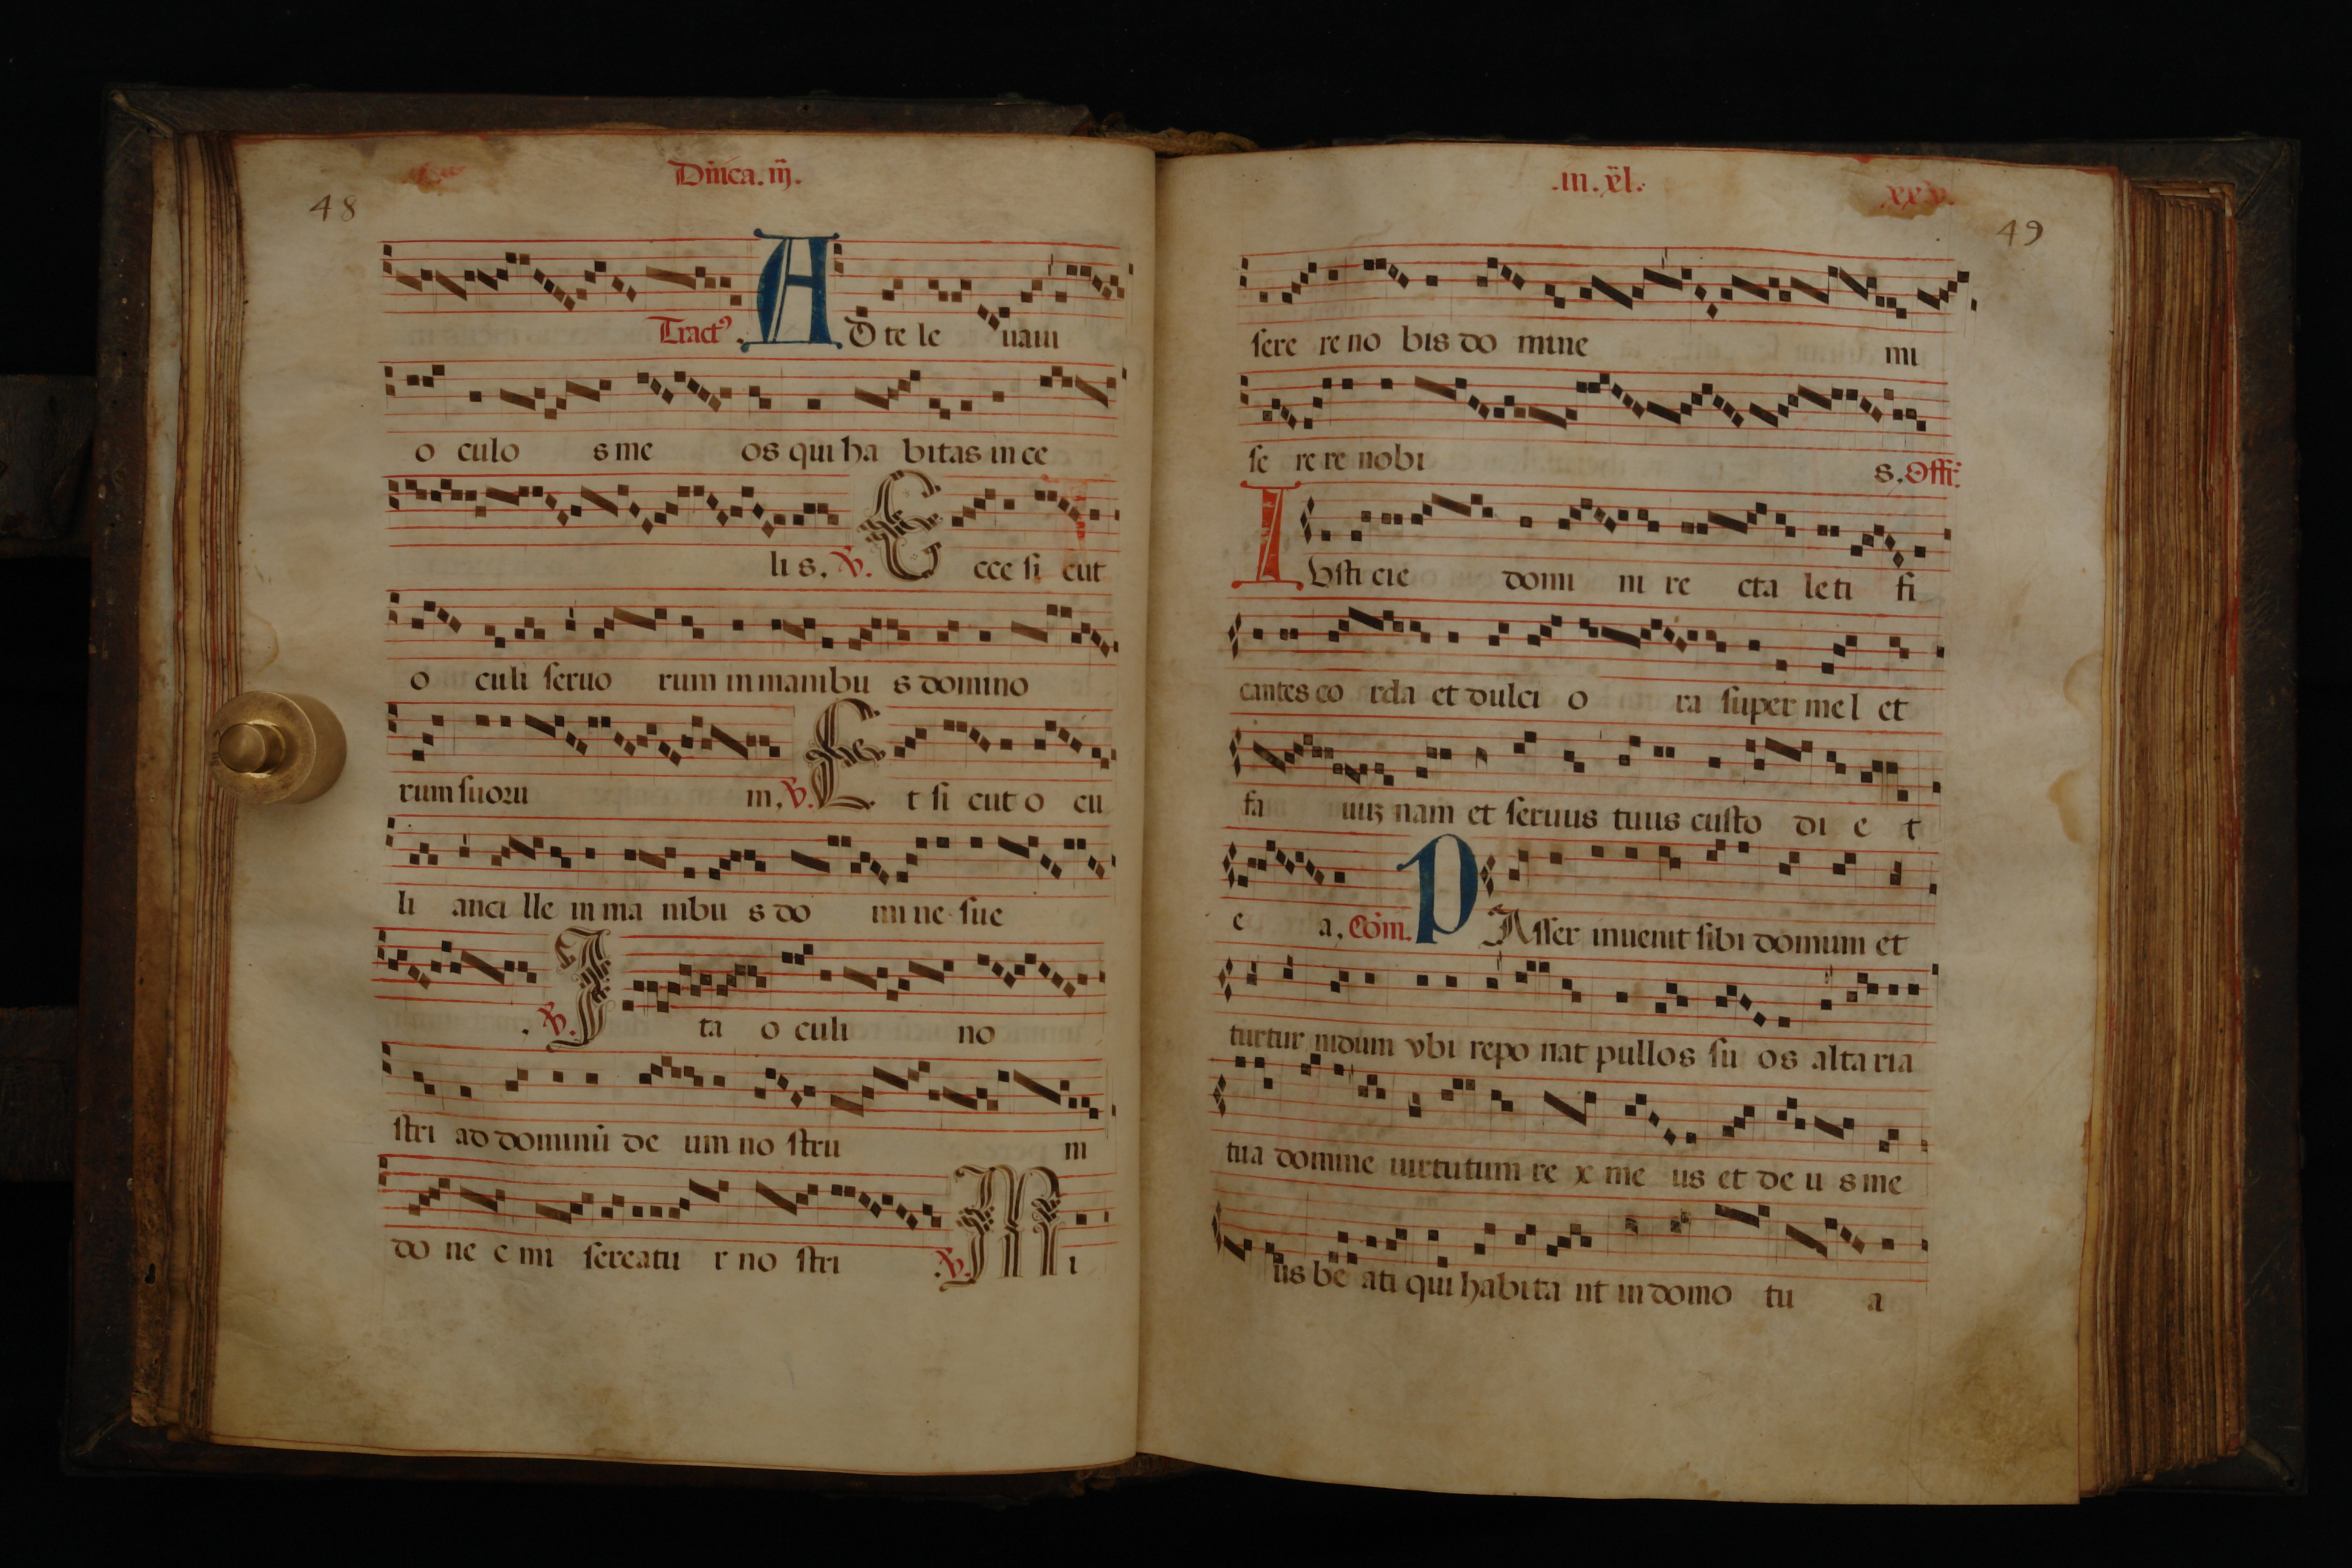 Dn̄ica. iij.
48
Tract⁹. AD te le uaui
o culo s me os qui ha bitas in ce
li s. V. Ecce si cut
o culi seruo rum in manibu s domino
rum suoru m. V. Et si cut o cu
li anci lle in ma nibu s do mi ne sue
. V. Ita o culi no
stri ad dominū de um no stru m
do ne c mi sereatu r no stri V. Mi
.in. xl.
xxv.
49
sere re no bis do mine mi
se re re nobi s. Offi.
IUsti cie domi ni re cta leti fi
cantes co rda et dulci o ra super me l et
fa uuȝ nam et seruus tuus custo di e t
e a. Com̄. PAsser inuenit sibi domum et
turtur nidum vbi repo nat pullos su os alta ria
tua domine uirtutum re x me us et de u s me
us be ati qui habita nt in domo tu a